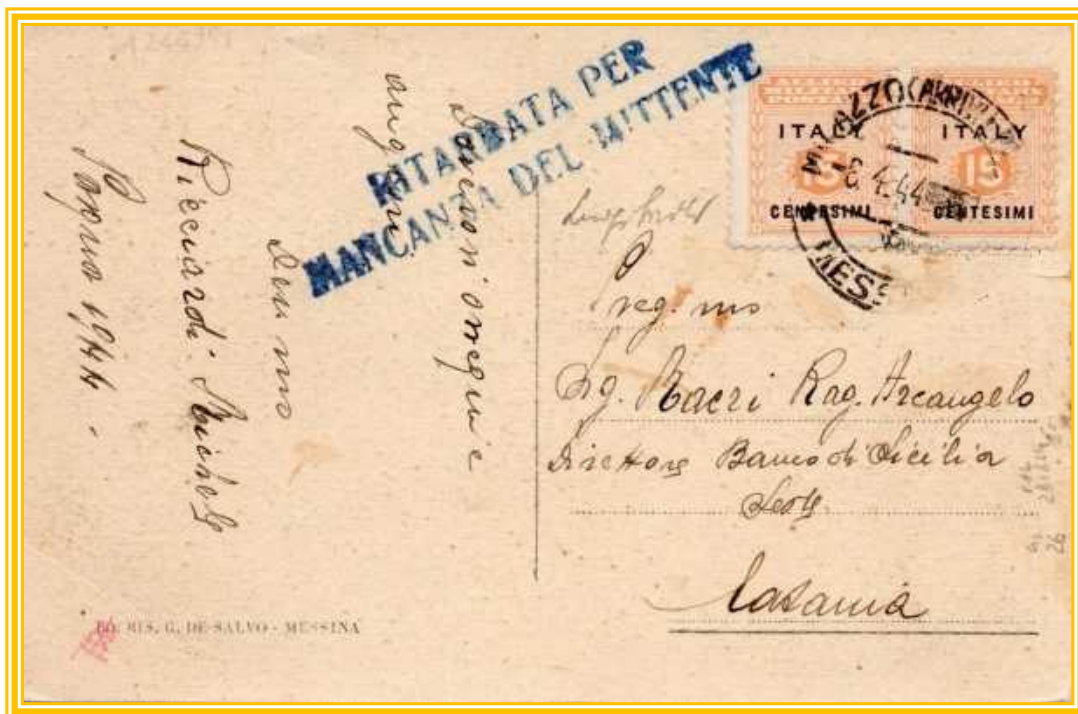 RITARDATA PER
MANCANZA DEL MITTENTE
ITALY
15
CENTESIMI
ITALY
15
CENTESIMI
MILAZZO (ARRIVI
6.4.44
MESS
auguri
Dev mo
Ricciardi Michele
1944.
Preg. mo
Sig. Rag. Arcangelo
Direttore Banco di Sicilia
Sede
Catania
ED. RIS. G. DE SALVO - MESSINA
26